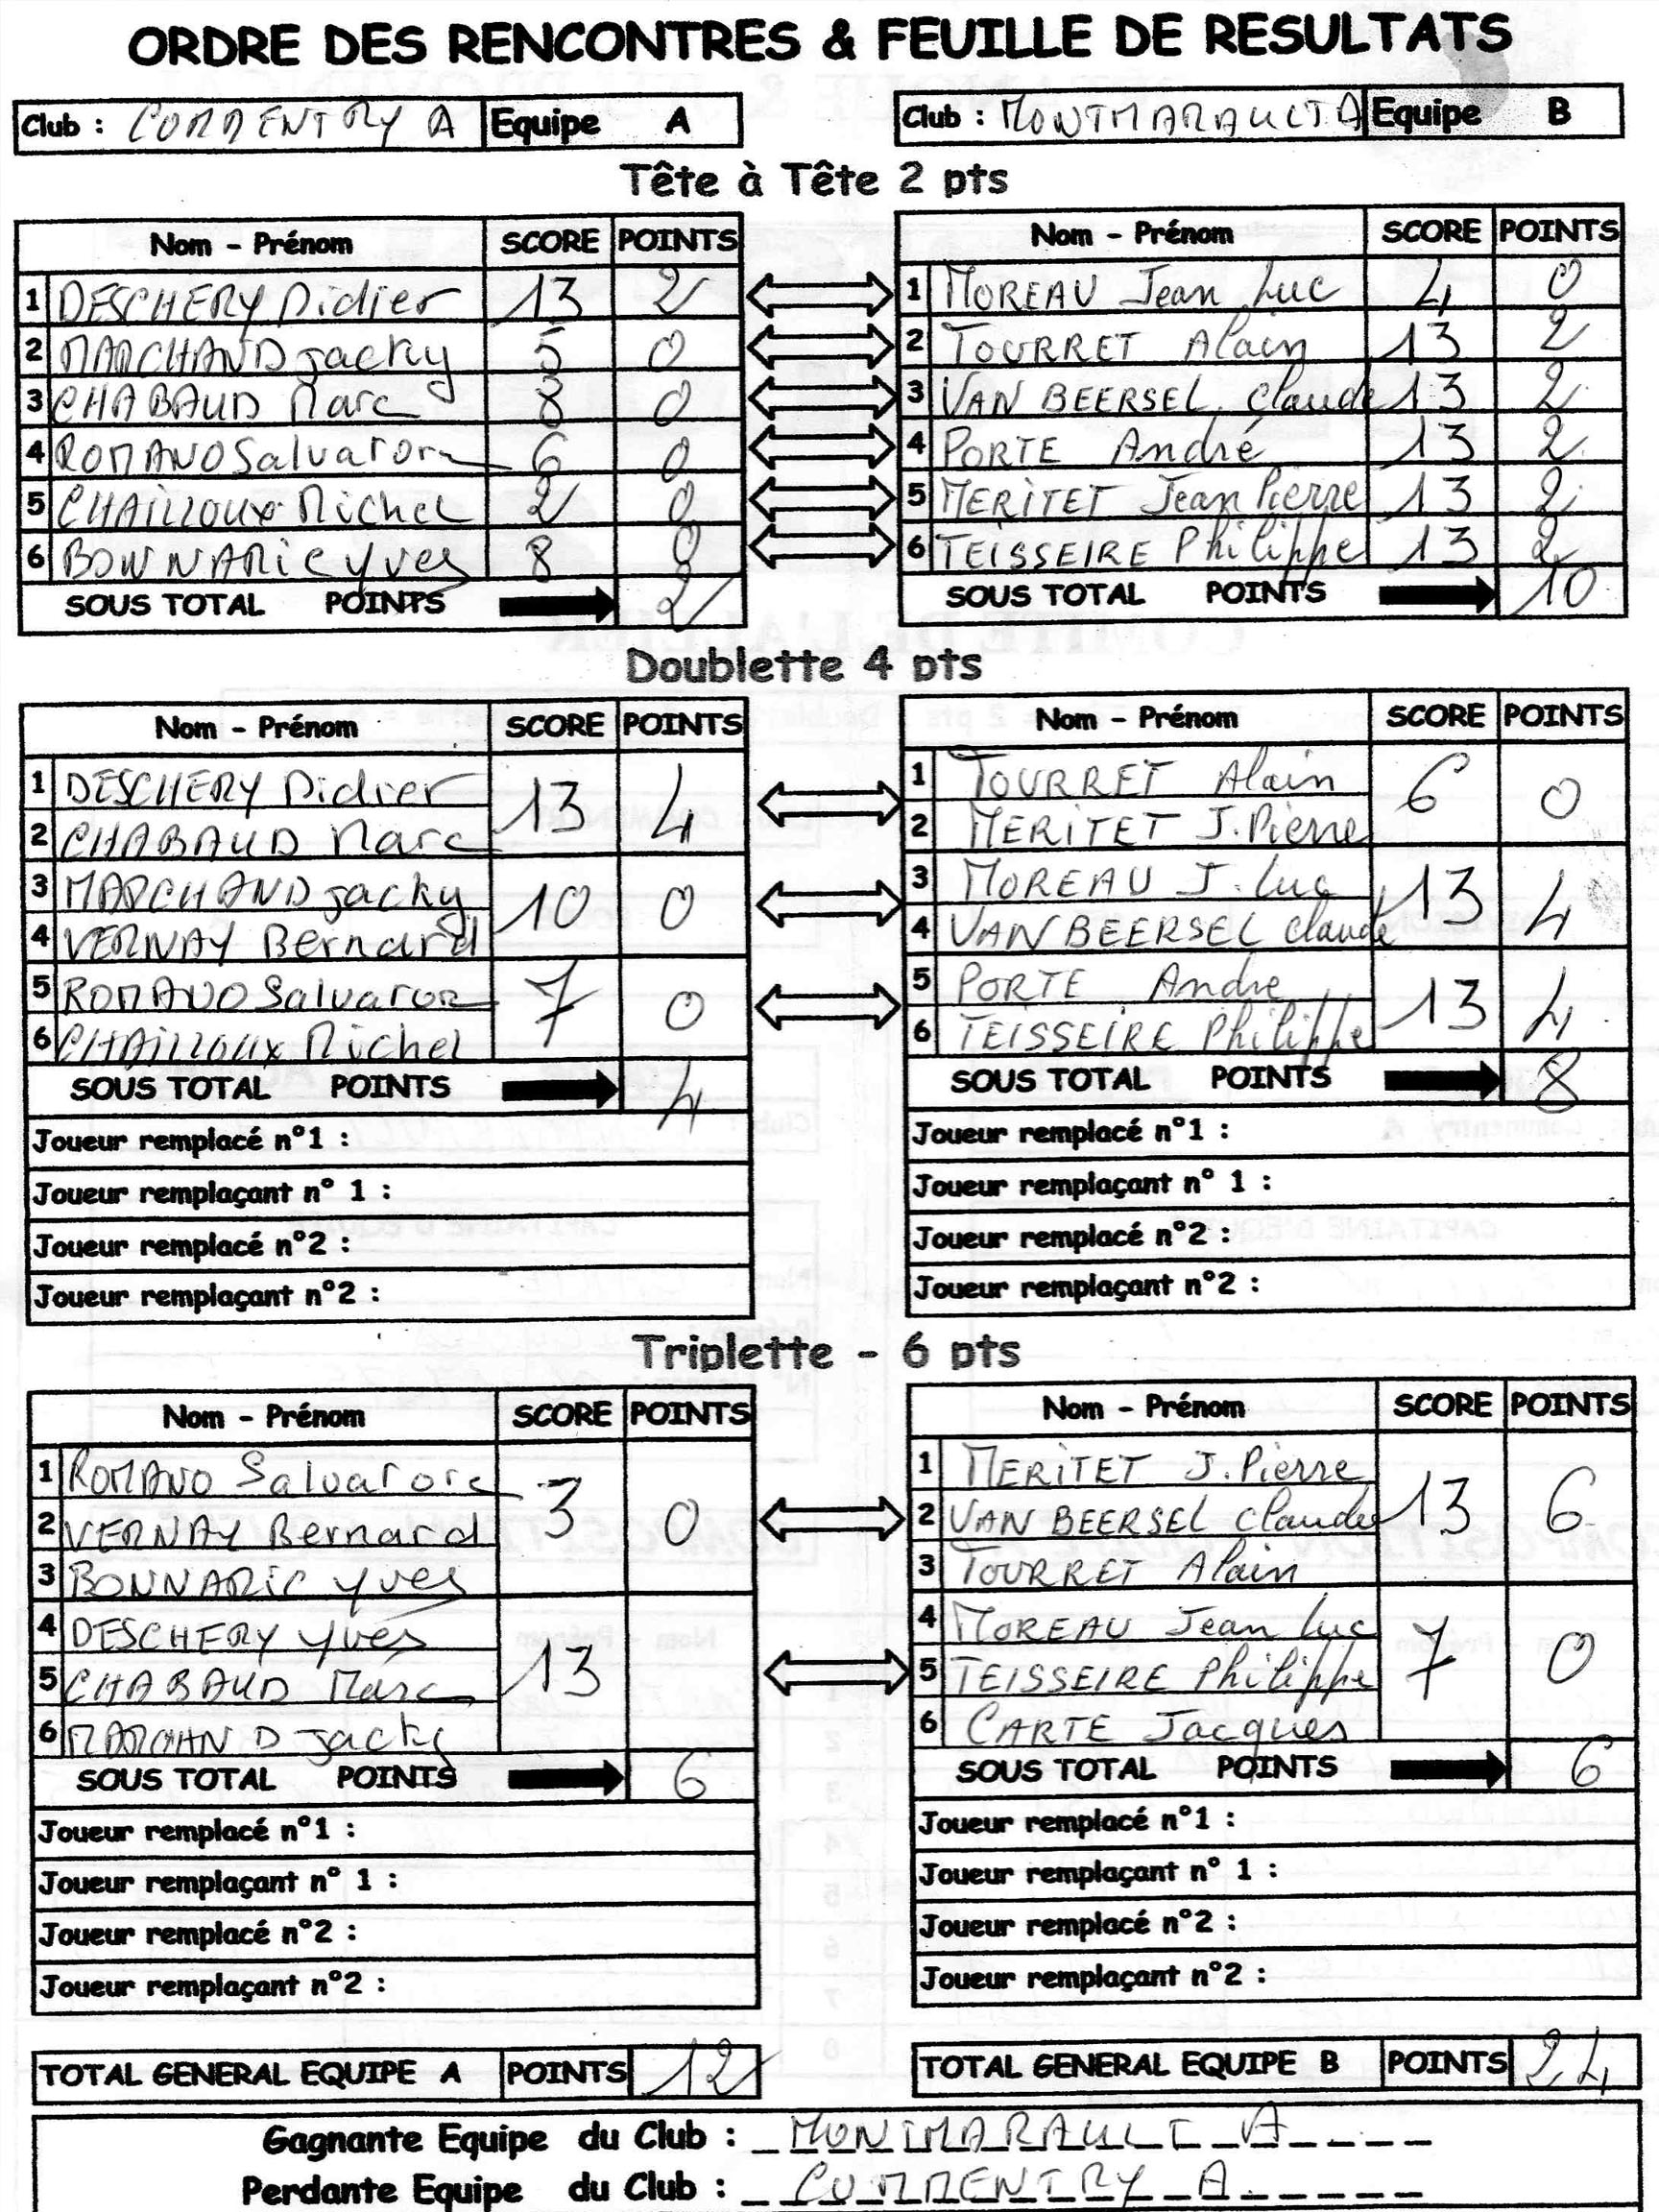 ORDRE DES RENCONTRES & FEUILLE DE RESULTATS
Club : COMMENTRY A Equipe A Club : MONTMARAULT A Equipe B
Tête à Tête 2 pts
Nom - Prénom SCORE POINTS Nom - Prénom SCORE POINTS
1 DESCHERY Didier 13 2 1 MOREAU Jean Luc 4 0
2 MARCHAND jacky 5 0 2 TOURRET Alain 13 2
3 CHABAUD Marc 8 0 3 VAN BEERSEL Claude 13 2
4 ROMANO Salvator 6 0 4 PORTE André 13 2
5 CHAILLOUX Michel 2 0 5 MERITET Jean Pierre 13 2
6 BONNARIC yves 8 0 6 TEISSEIRE Philippe 13 2
SOUS TOTAL POINTS 2 SOUS TOTAL POINTS 10
Doublette 4 pts
Nom - Prénom SCORE POINTS Nom - Prénom SCORE POINTS
1 DESCHERY Didier 13 4 1 TOURRET Alain 6 0
2 CHABAUD Marc 2 MERITET J.Pierre
3 MARCHAND jacky 10 0 3 MOREAU J.Luc 13 4
4 VERNAY Bernard 4 VAN BEERSEL claude
5 ROMANO Salvator 7 0 5 PORTE Andre 13 4
6 CHAILLOUX Michel 6 TEISSEIRE Philippe
SOUS TOTAL POINTS 4 SOUS TOTAL POINTS 8
Joueur remplacé n°1 : Joueur remplacé n°1 :
Joueur remplaçant n° 1 : Joueur remplaçant n° 1 :
Joueur remplacé n°2 : Joueur remplacé n°2 :
Joueur remplaçant n°2 : Joueur remplaçant n°2 :
Triplette - 6 pts
Nom - Prénom SCORE POINTS Nom - Prénom SCORE POINTS
1 ROMANO Salvatore 3 0 1 MERITET J.Pierre 13 6
2 VERNAY Bernard 2 VAN BEERSEL claude
3 BONNARIC yves 3 TOURRET Alain
4 DESCHERY yves 13 4 MOREAU Jean Luc 7 0
5 CHABAUD Marc 5 TEISSEIRE Philippe
6 MARCHAND jacky 6 CARTE Jacques
SOUS TOTAL POINTS 6 SOUS TOTAL POINTS 6
Joueur remplacé n°1 : Joueur remplacé n°1 :
Joueur remplaçant n° 1 : Joueur remplaçant n° 1 :
Joueur remplacé n°2 : Joueur remplacé n°2 :
Joueur remplaçant n°2 : Joueur remplaçant n°2 :
TOTAL GENERAL EQUIPE A POINTS 12 TOTAL GENERAL EQUIPE B POINTS 24
Gagnante Equipe du Club : MONTMARAULT A
Perdante Equipe du Club : COMMENTRY A